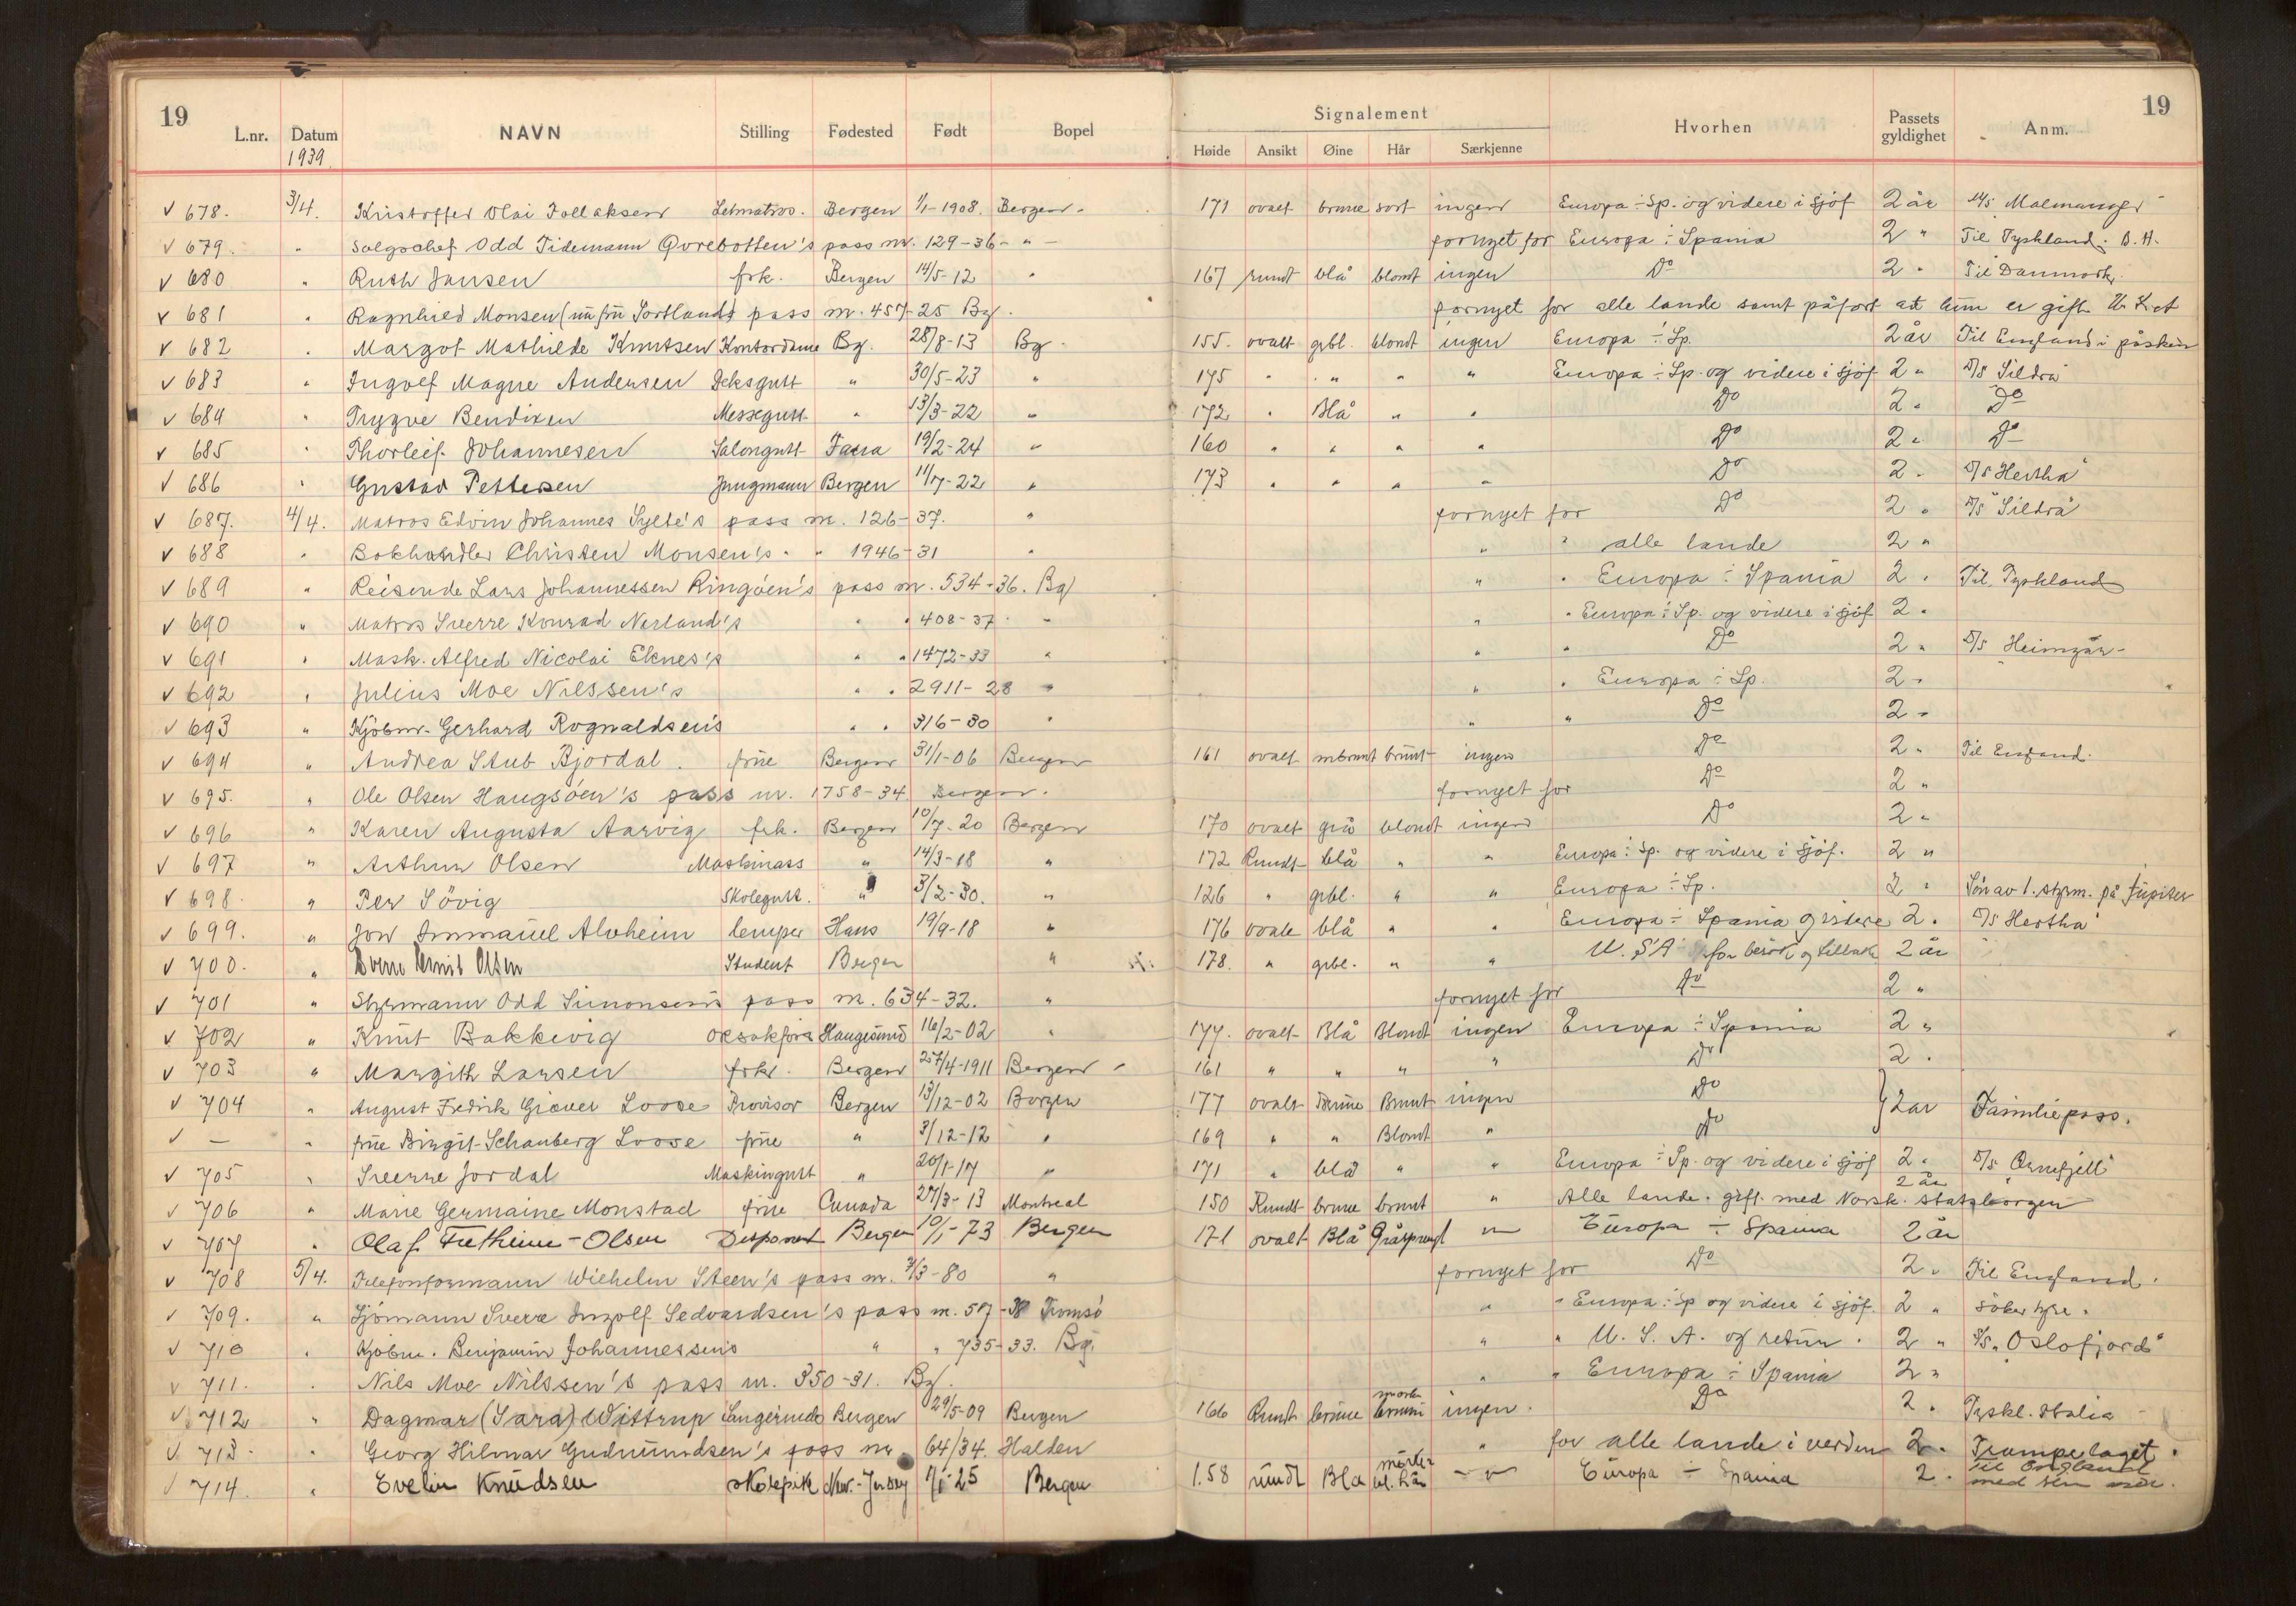 19 19
Signalement
L.nr. Datum NAVN Stilling Fødested Født Bopel Høide Ansikt Øine Hår Særkjenne Hvorhen Passets gyldighet Anm.
1939
v 678. 3/4. Kristoffer Olai Follaksen Letmatros. Bergen 1/1-1908. Bergen 171 ovalt brune sort ingen Europa ÷ Sp. og videre i sjöf 2 år M/S Malmanger
v 679. " Salgschef Odd Tidemann Qvrebotten's pass nr. 129-36 - " - fornyet for Europa ÷ Spania 2 " Til Tyskland. B.H.
v 680 " Ruth Jansen frk. Bergen 14/5-12 " 167 rundt blå blondt ingen Do 2 " Til Danmark.
v 681 " Ragnhild Monsen (nu fru Sortland) pass nr. 457-25 Bg. fornyet for alle lande samt påfört at hun er gift.
v 682 " Margot Mathilde Knutsen Kontordame Bg. 28/8-13 Bg. 155. ovalt grbl. blondt ingen Europa ÷ Sp. 2 år Til England i påsken
v 683 " Ingolf Magne Andersen Deksgutt " 30/5-23 " 175 " " " " Europa ÷ Sp. og videre i sjöf 2 " D/S Sildra
v 684 " Trygve Bendixen Messegutt " 13/3-22 " 172 " Blå " " Do 2 " Do
v 685 " Thorleif Johannesen Salongutt Fana 19/2-24 " 160 " " " " Do 2 " Do
v 686 " Gustav Pettersen Jungmann Bergen 11/7-22 " 173 " " " " Do 2 " D/S Hertha
v 687. 4/4. Matros Edvin Johannes Sylte's pass nr. 126-37. " fornyet for Do 2 " D/S Sildra
v 688 " Bokhandler Christen Monsen's " " 1946-31 " " " alle lande 2 "
v 689 " Reisende Lars Johannessen Ringöen's pass nr. 534-36. Bg " " Europa ÷ Spania 2 " Til Tyskland
v 690 " Matros Sverre Konrad Nerland's " " 408-37 " " " Europa ÷ Sp. og videre i sjöf 2 "
v 691 " Mask. Alfred Nicolai Eknes's " " 1472-33 " " " Do 2 " D/S Heimgar
v 692 " Julius Moe Nilssen's " " 2911-28 " " " Europa ÷ Sp. 2 "
v 693 " Kjöbm. Gerhard Rognaldsen's " " 316-30 " " " Do 2 "
v 694 " Andrea Stub Bjordal. frue Bergen 31/1-06 Bergen 161 ovalt mbrunt brunt ingen Do 2 " Til England.
v 695. " Ole Olsen Haugsöen's pass nr. 1758-34 Bergen. fornyet for Do 2 "
v 696 " Karen Augusta Aarvig frk. Bergen 10/7-20 Bergen 170 ovalt grå blondt ingen Do 2 "
v 697 " Arthur Olsen Maskinass " 14/3-18 " 172 Rundt blå " " Europa ÷ Sp. og videre i sjöf. 2 "
v 698. " Per Sövig Skolegutt. " 3/2-30. " 126 " grbl. " " Europa ÷ Sp. 2 " Sön av 1. styrm. på Jupiter
v 699. " Jon Immanuel Alvheim lemper Hans 19/9-18 " 176 ovale blå " " Europa ÷ Spania og videre 2 " D/S Hertha
v 700. " Olsen Student Bergen " 178. " grbl. " " U.S.A. for besök og tilbake 2 år
v 701 " Styrmann Odd Simonsen's pass nr. 634-32. " fornyet for Do 2 "
v 702 " Knut Bakkevig Haugesund 16/2-02 " 177. ovalt Blå Blondt ingen Europa ÷ Spania 2 "
v 703 " Margith Larsen frk. Bergen 27/4-1911 Bergen 161 " " " " Do 2 "
v 704 " August Fredrik Giæver Loose Provisor Bergen 13/12-02 Bergen 177 ovalt Brune Brunt ingen Do } 2 år Familiepass.
v — " frue Birgit Schanberg Loose frue " 3/12-12 " 169 " " Blondt " Do
v 705 " Sverre Jordal Maskingutt " 20/1-17 " 171 " blå " " Europa ÷ Sp. og videre i sjöf 2 " D/S Ørnefjell
v 706 " Marie Germaine Monstad frue Canada 27/3-13 Montreal 150 Rundt brune brunt " Alle lande. gift med Norsk statsborger 2 år
v 707 " Olaf Fretheim-Olsen Disponent Bergen 10/1-73 Bergen 171 ovalt Blå Gråsprengt " Europa ÷ Spania 2 år
v 708 5/4. Telefonformann Wilhelm Steen's pass nr. 3/3-80 " fornyet for Do 2 " Til England.
v 709. " Sjömann Sverre Ingolf Sedvardsen's pass nr. 57-38 Tromsö " " Europa ÷ Sp og videre i sjöf. 2 " söker hyre.
v 710 " Kjöbm. Benjamin Johannessen's " " 735-33. Bg. " " U.S.A. og retur. 2 " D/S "Oslofjord"
v 711. " Nils Moe Nilssen's pass nr. 350-31. Bg. " " Europa ÷ Spania 2 "
v 712 " Dagmar (Sara) Wittrup Sangerinde Bergen 29/5-09 Bergen 166 Rundt brune mørk brunt ingen. Do 2 " Tyskl. Italia
v 713 " Georg Hilmar Gudmundsen's pass nr. 64/34. Halden " for alle lande i verden 2 " Trampelaget.
v 714. " Evelin Knudsen Skolepik New-Jersey 1/1-25 Bergen 1.58 rundt Blå mörkt bl. hår " Europa ÷ Spania 2 " Til England med sin mor.